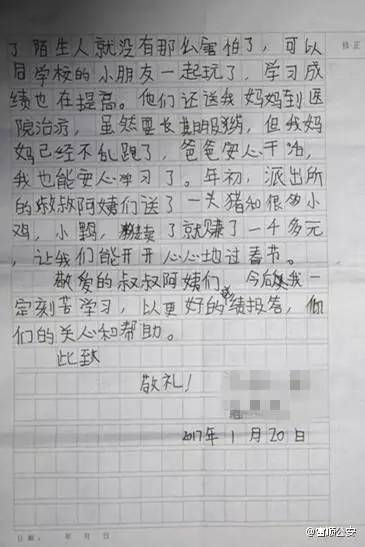 了陌生人就没有那么害怕了，可以
同学校的小朋友一起玩了，学习成
绩也在提高。他们还送我妈妈到医
院治疗，虽然要长期服药，但我妈
妈已经不乱跑了，爸爸安心干活，
我也能安心学习了。年初，派出所
的叔叔阿姨们送了一头猪和很多小
鸡，小鸭，卖了就赚了一千多元
，让我们能开开心心地过春节。
敬爱的叔叔阿姨们，今后我一
定刻苦学习，以更好的成绩报答，你
们的关心和帮助。
此致
敬礼！
2017年1月20日
修正
日期： 年 月 日
@富顺公安